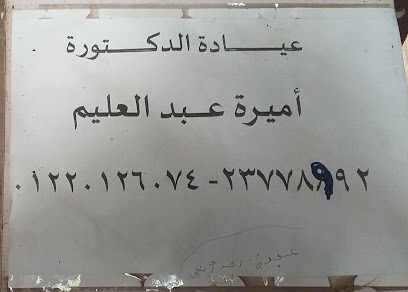 عيادة الدكتورة
أميرة عبد العليم
٠١٢٢٠١٢٦٠٧٤ - ٢٣٧٧٨٩٩٢